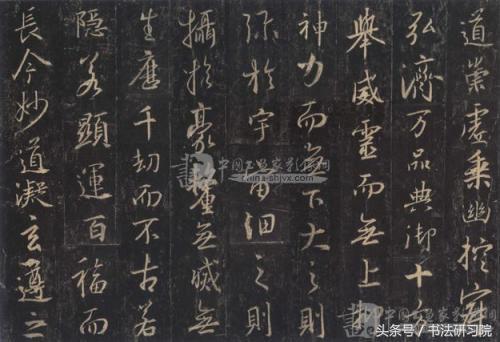 道崇虛乘幽控寂
弘濟万品典御十方
舉威靈而無上抑
神力而無下大之則
弥於宇宙細之則
攝於豪釐無滅無
生歷千劫而不古若
隱若顯運百福而
長今妙道凝玄遵之
头条号 / 书法研习院